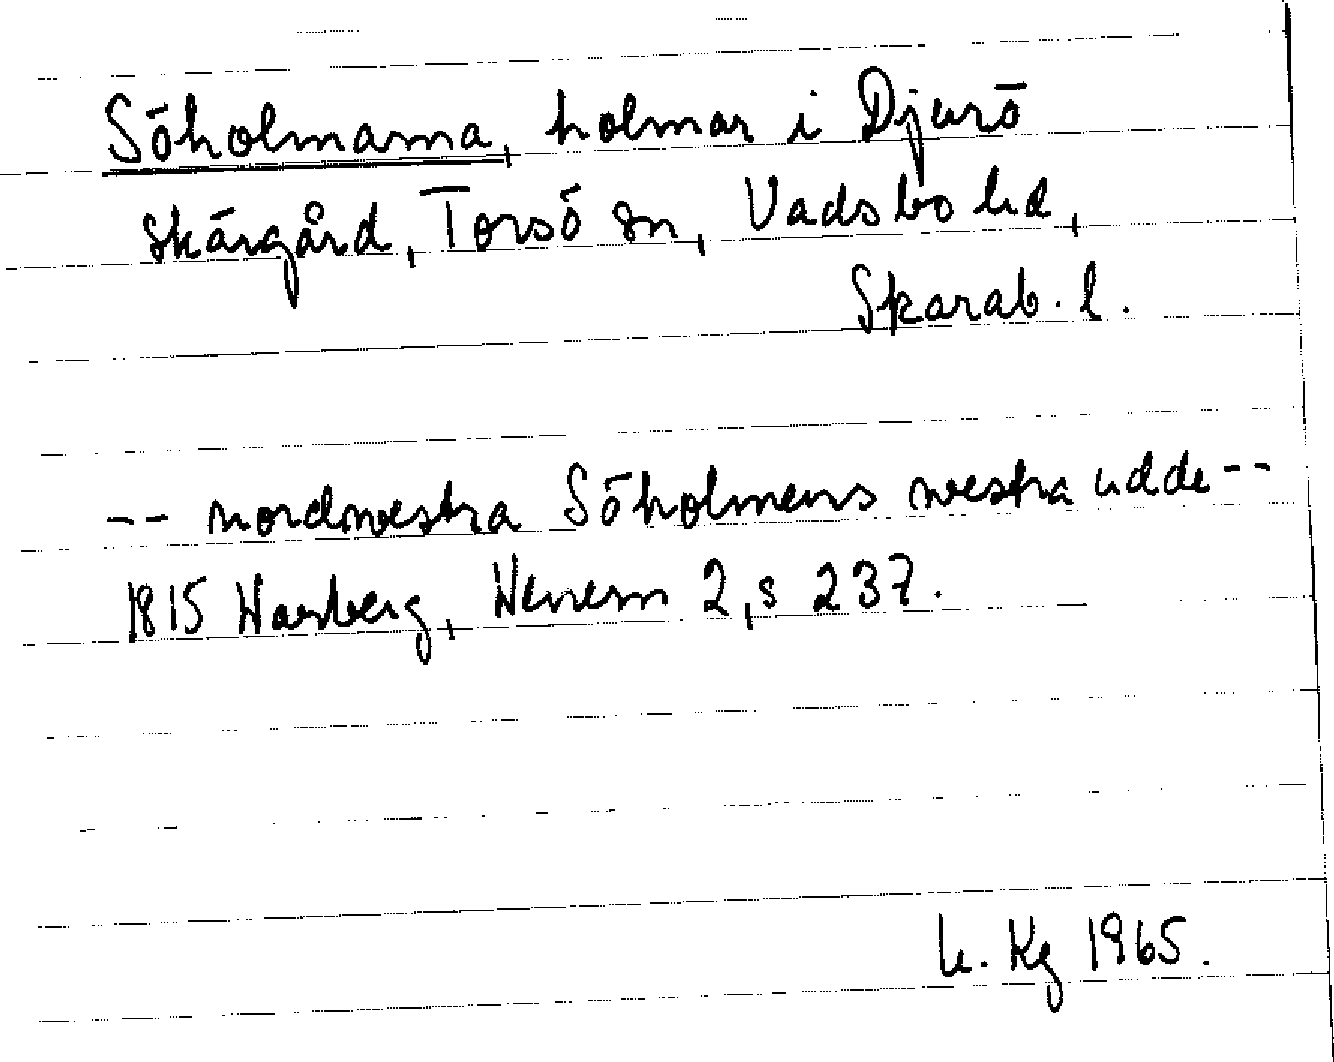 Söholmarna, holmar i Djurö
skärgård, Torsö sn, Vadsbo hd,
Skarab. l.
-- nordwestra Söholmens westra udde --
1815 Warberg, Wenern 2, s 237.
Kg 1965.